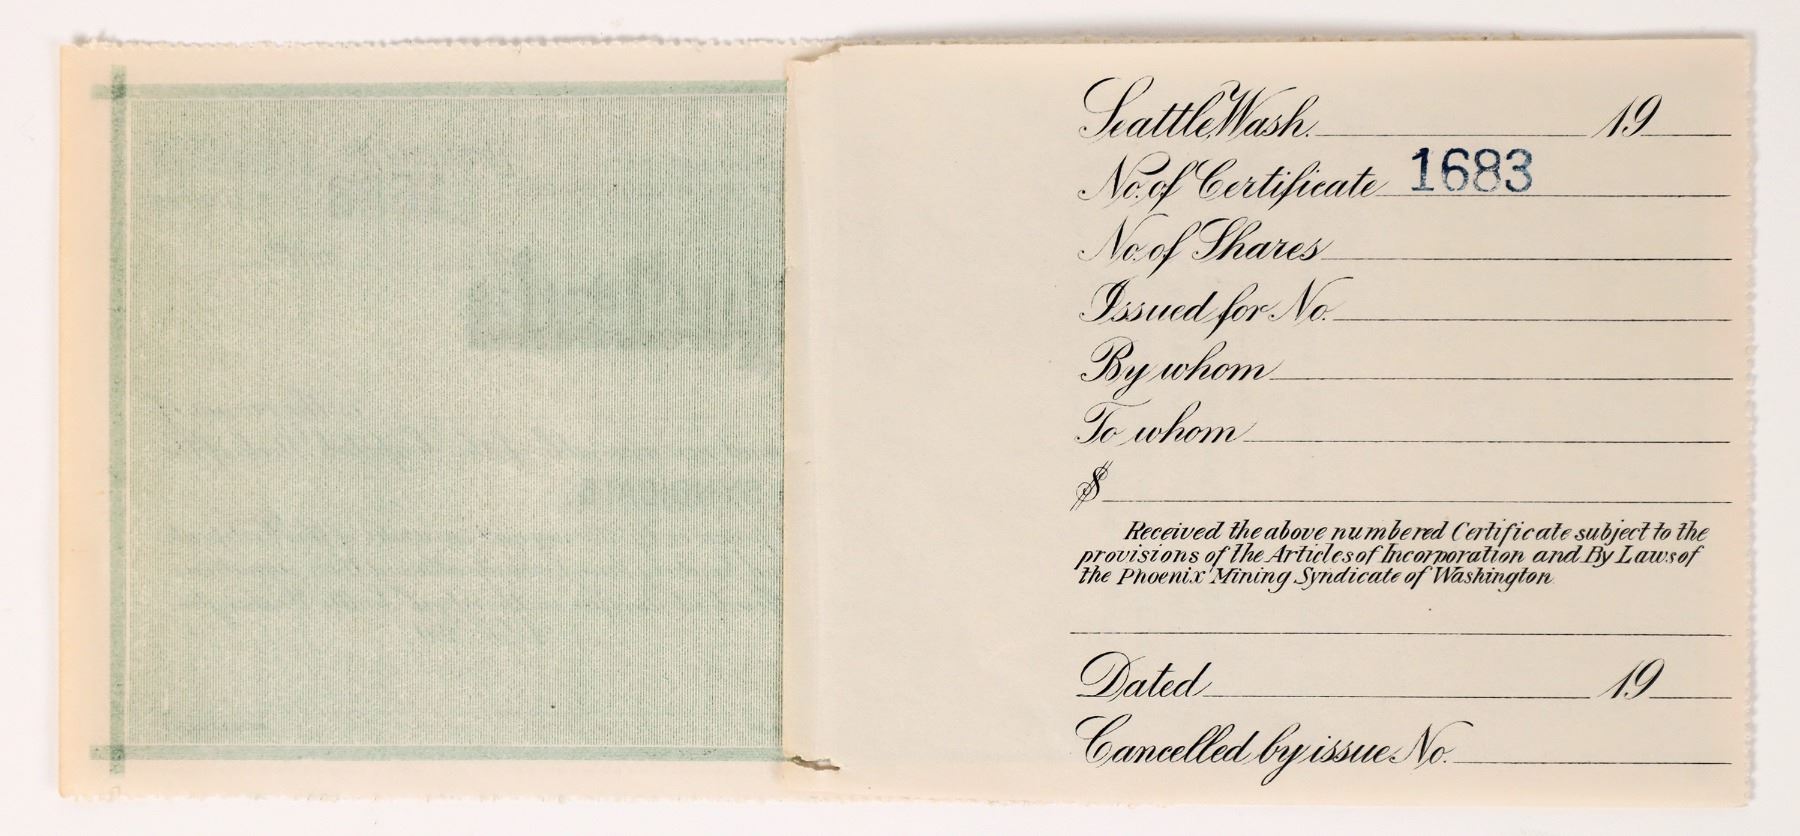 Seattle, Wash. 19
No. of Certificate 1683
No. of Shares
Issued for No.
By whom
To whom
$
Received the above numbered Certificate subject to the
provisions of the Articles of Incorporation and By Laws of
the Phoenix Mining Syndicate of Washington
Dated 19
Cancelled by issue No.